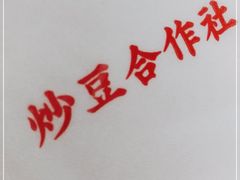 炒豆合作社